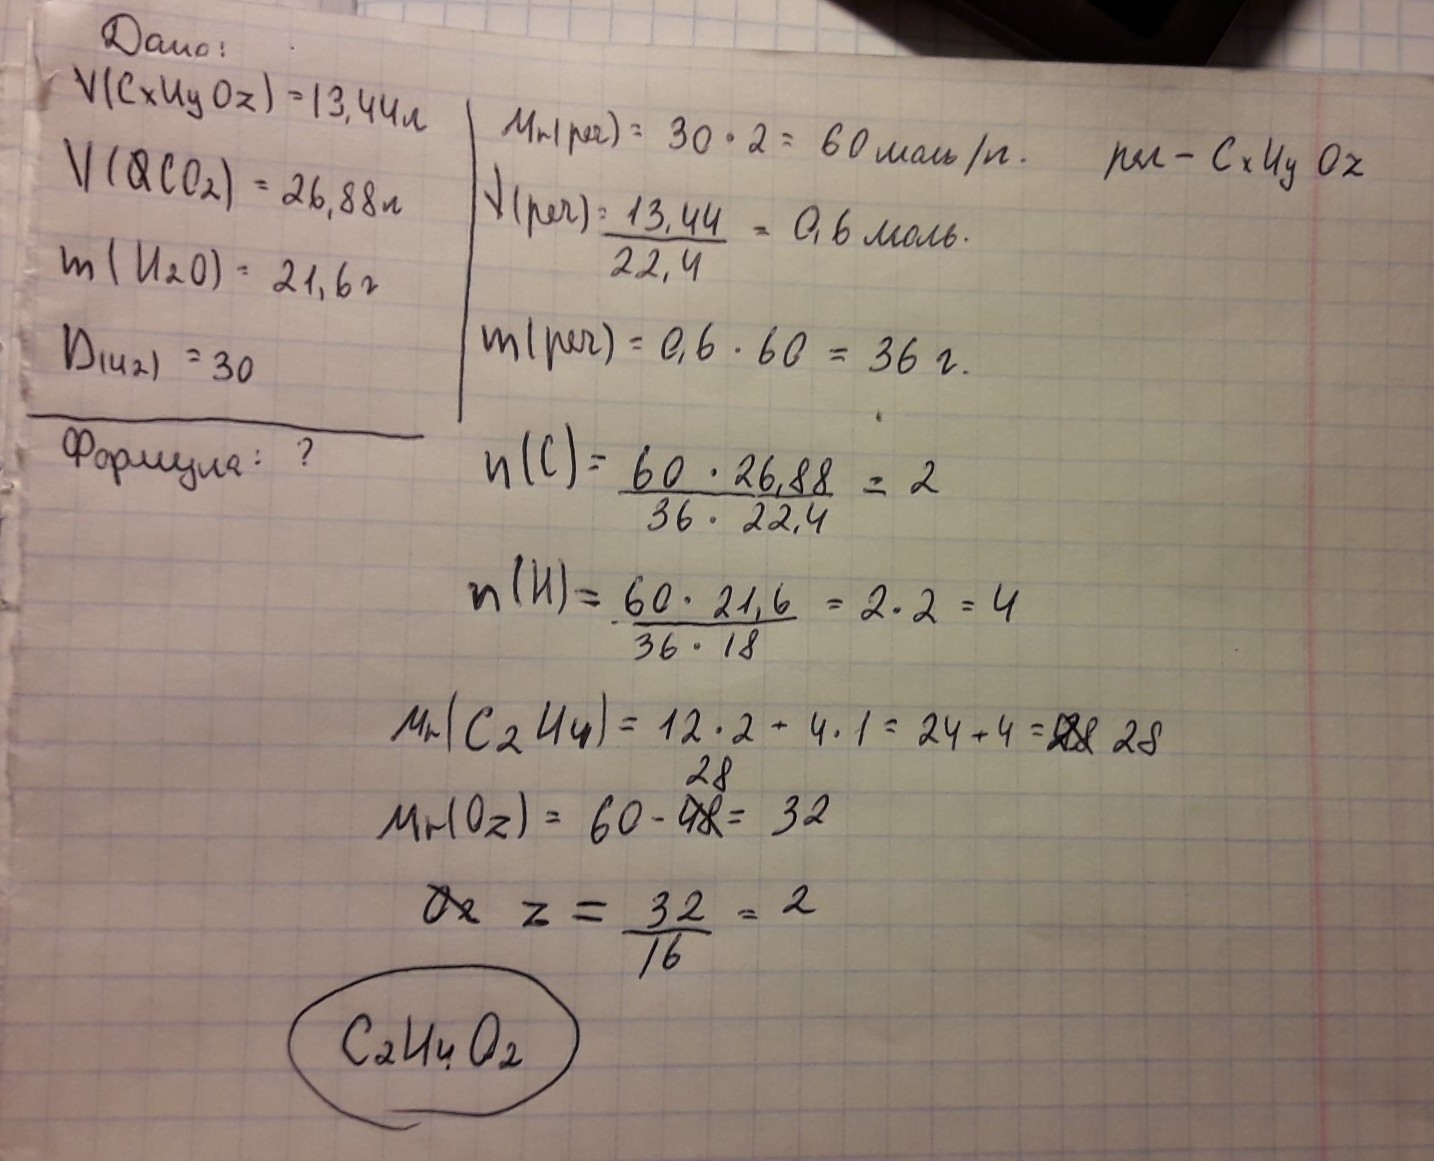 Дано:
V(CxHyOz) = 13,44 л
V(CO2) = 26,88 л
m(H2O) = 21,6 г
D(H2) = 30
Формула: ?
Mr(рег) = 30 · 2 = 60 моль/г. рег - CxHyOz
V(рег) = 13,44 / 22,4 = 0,6 моль.
m(рег) = 0,6 · 60 = 36 г.
n(C) = 60 · 26,88 / 36 · 22,4 = 2
n(H) = 60 · 21,6 / 36 · 18 = 2 · 2 = 4
Mr(C2H4) = 12 · 2 + 4 · 1 = 24 + 4 = 28
Mr(Oz) = 60 - 28 = 32
z = 32 / 16 = 2
C2H4O2